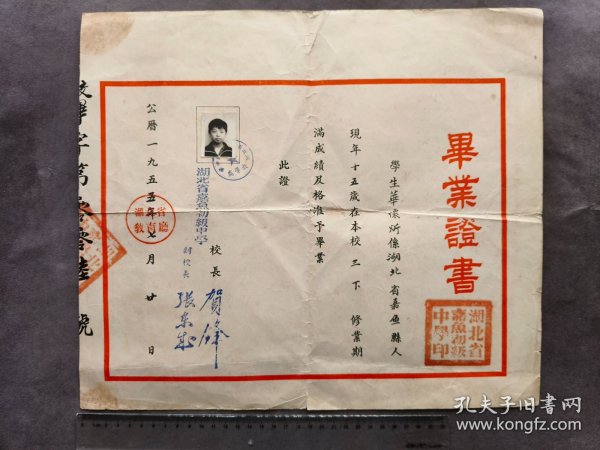 畢業證書
湖北省
嘉魚初級
中學印
學生華懷炘係湖北省嘉魚縣人
現年十五歲在本校三下修業期
滿成績及格准予畢業
此證
校長
副校長
湖北省嘉魚初級中學
公曆一九五五年七月廿日
校畢字第零零陸號
孔夫子旧书网
www.kongfz.com